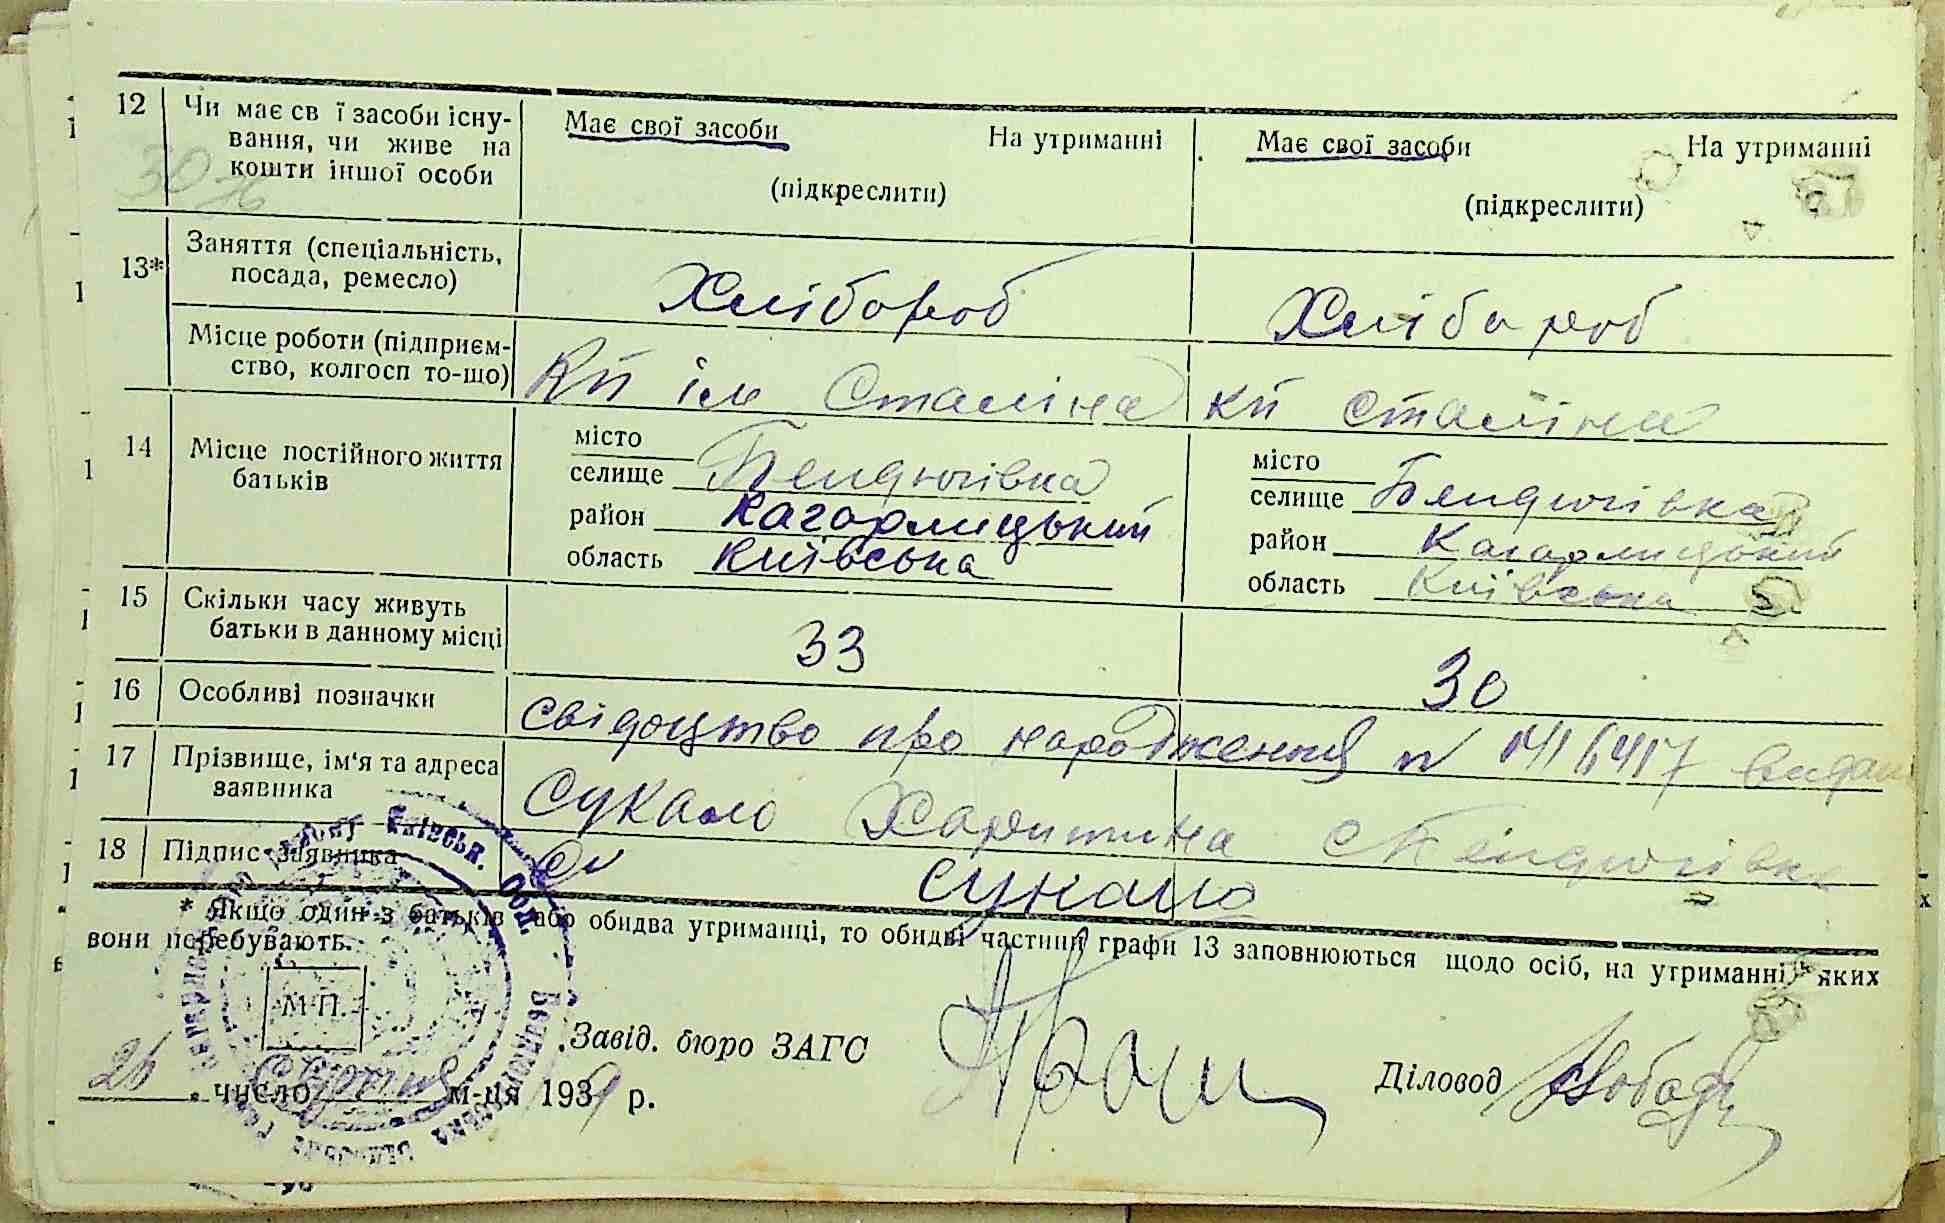 12 Чи має св ї засоби існу-
вання, чи живе на
кошти іншої особи
Має свої засоби На утриманні
(підкреслити)
Має свої засоби На утриманні
(підкреслити)
13* Заняття (спеціальність,
посада, ремесло)
Хлібороб
Хлібороб
Місце роботи (підприєм-
ство, колгосп то-що)
КП ім Сталіна
КП Сталіна
14 Місце постійного життя
батьків
місто
селище Бендюгівка
район Кагарлицький
область Київська
місто
селище Бендюгівка
район Кагарлицький
область Київська
15 Скільки часу живуть
батьки в данному місці
33
30
16 Особливі позначки
свідоцтво про народження N
17 Прізвище, ім'я та адреса
заявника
Сукало Харитина с Бендюгівка
18 Підпис заявника
Сукало
* Якщо один з батьків або обидва утриманці, то обидві частини графи 13 заповнюються щодо осіб, на утриманні яких
вони перебувають.
М.П.
Завід. бюро ЗАГС
Діловод
26 число Серпня м-ця 1939 р.